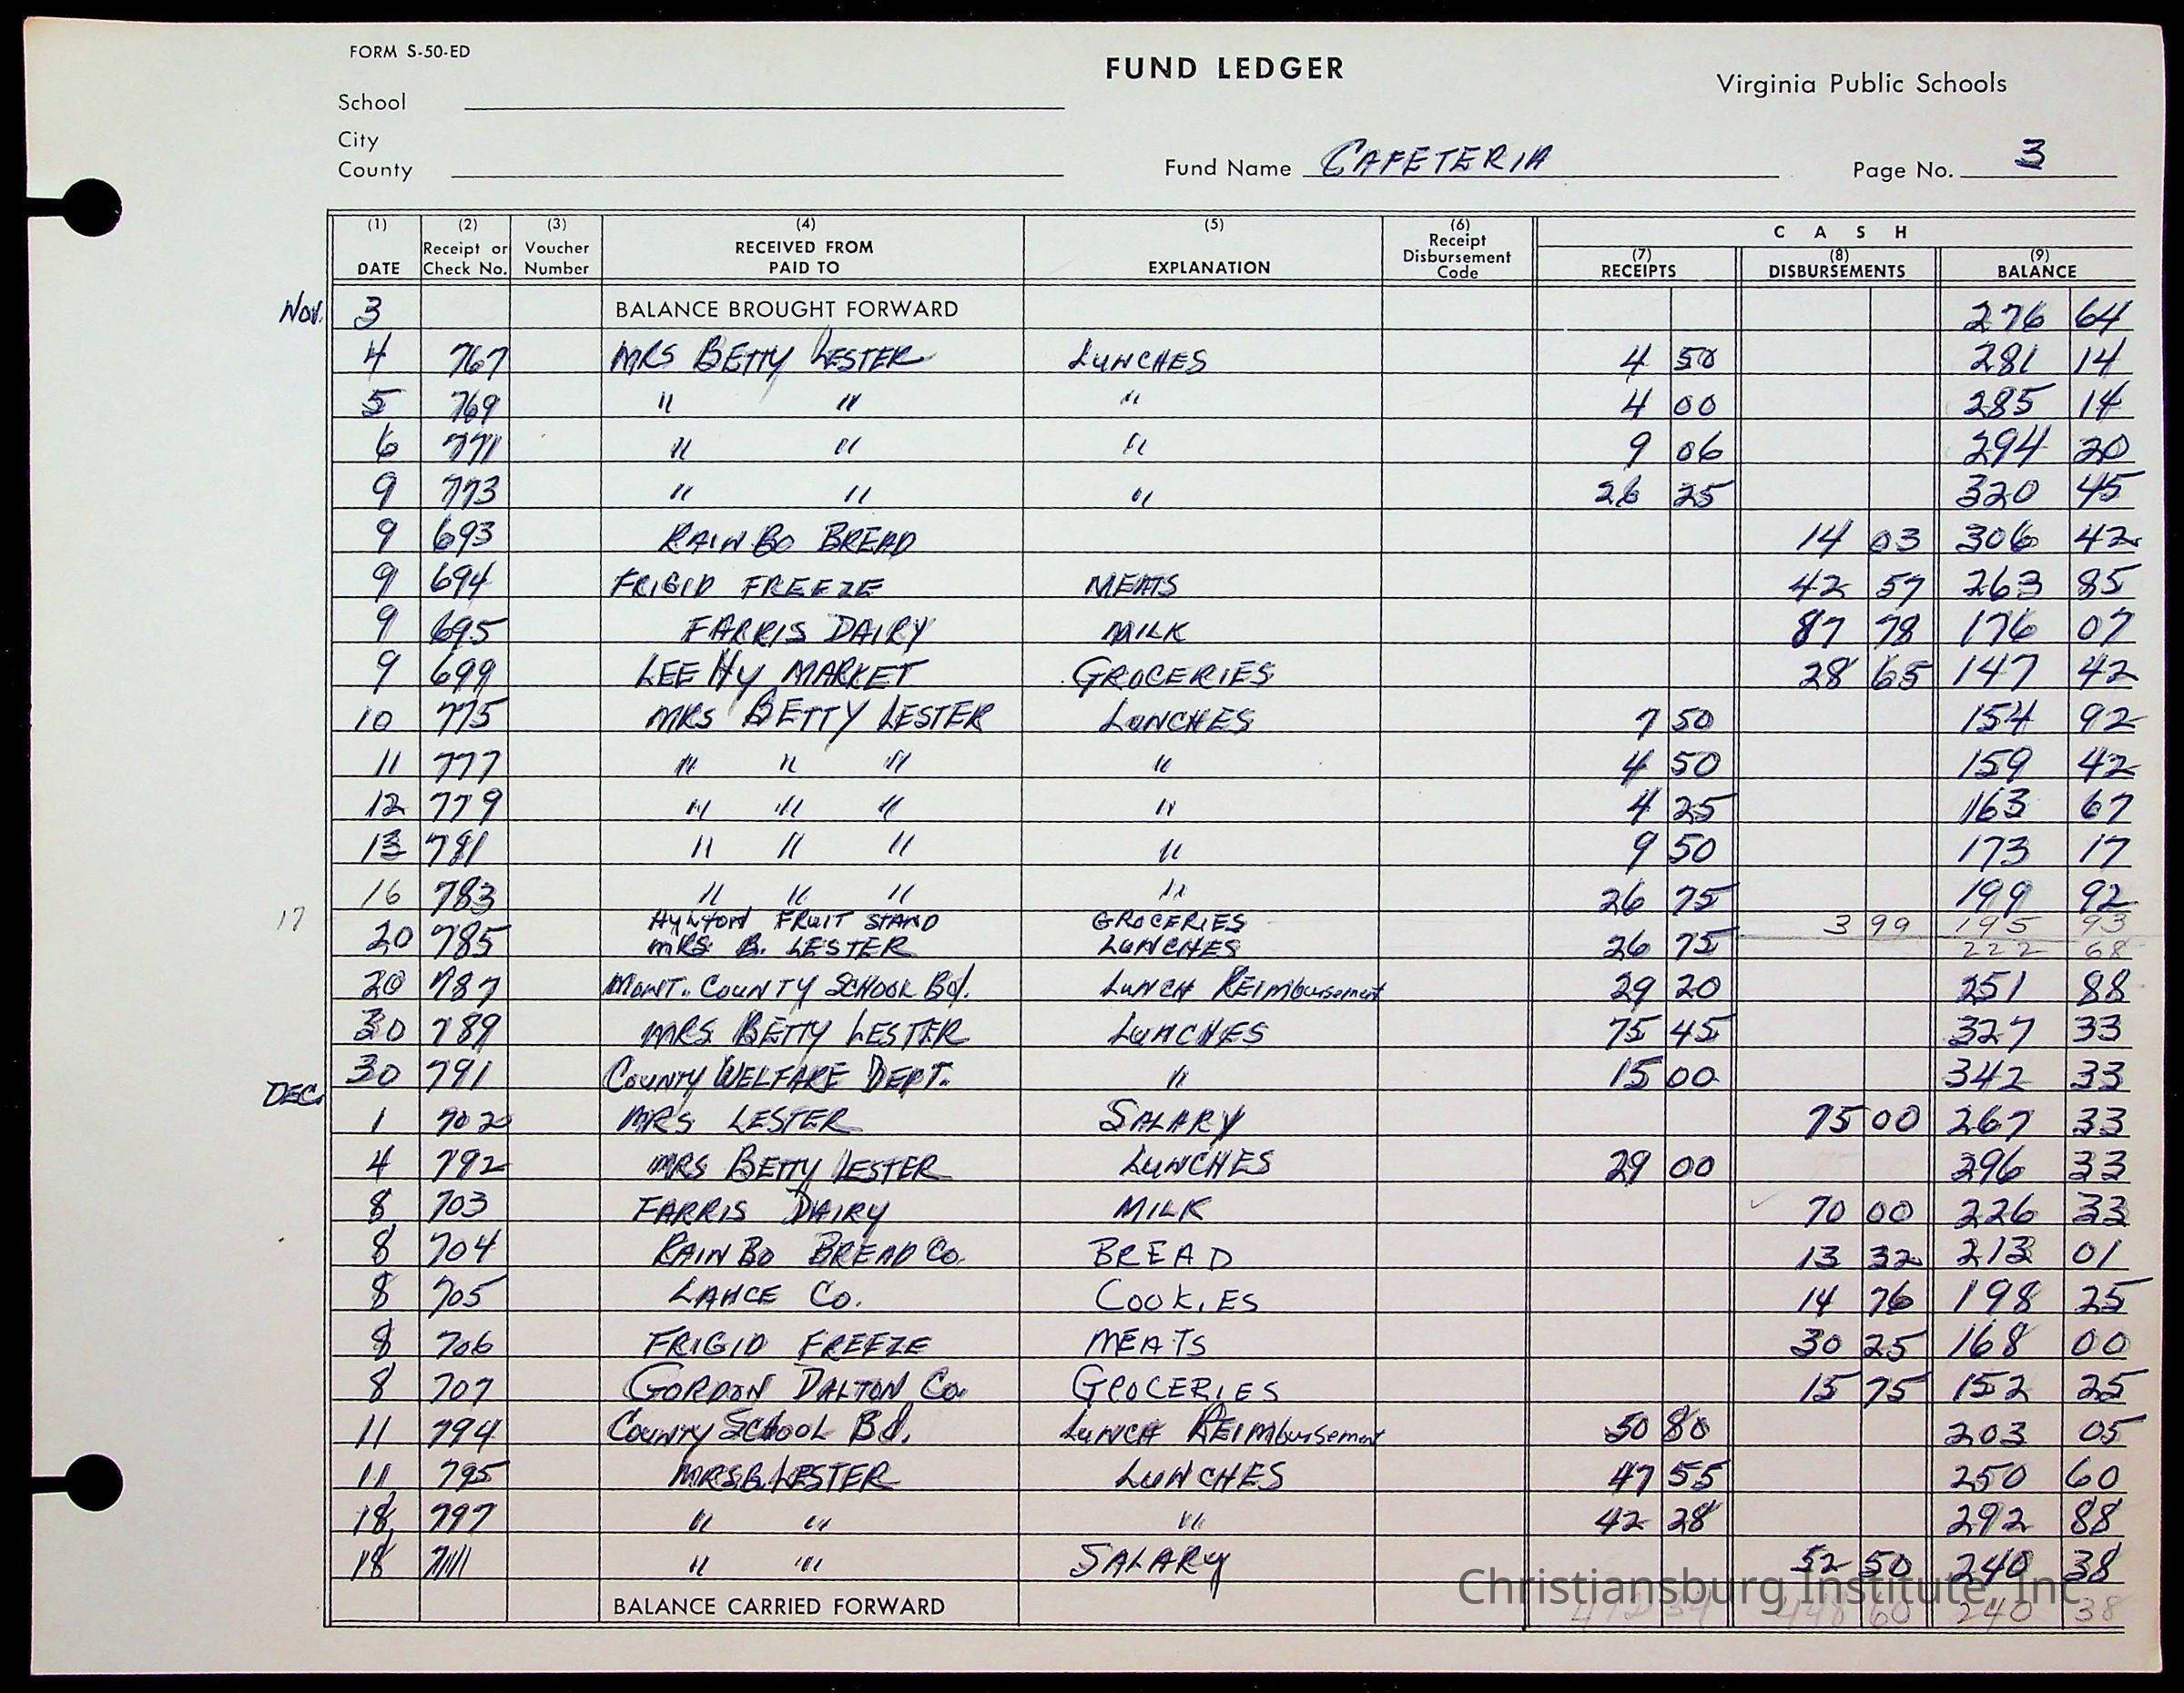 FORM S-50-ED
FUND LEDGER
Virginia Public Schools
School
City
County
Fund Name CAFETERIA
Page No. 3
(1) DATE (2) Receipt or Check No. (3) Voucher Number (4) RECEIVED FROM PAID TO (5) EXPLANATION (6) Receipt Disbursement Code CASH (7) RECEIPTS (8) DISBURSEMENTS (9) BALANCE
Nov. 3 BALANCE BROUGHT FORWARD 276 64
4 767 MRS BETTY LESTER LUNCHES 4 50 281 14
5 769 " " " 4 00 285 14
6 771 " " " 9 06 294 20
9 773 " " " 26 25 320 45
9 693 RAINBO BREAD 14 03 306 42
9 694 FRIGID FREEZE MEATS 42 57 263 85
9 695 FARRIS DAIRY MILK 87 78 176 07
9 699 LEE HY MARKET GROCERIES 28 65 147 42
10 775 MRS BETTY LESTER LUNCHES 7 50 154 92
11 777 " " " " 4 50 159 42
12 779 " " " " 4 25 163 67
13 781 " " " " 9 50 173 17
16 783 " " " " 26 75 199 92
17 HYLTON FRUIT STAND GROCERIES 3 99 195 93
20 785 MRS B. LESTER LUNCHES 26 75 222 68
20 787 MONT. COUNTY SCHOOL Bd. LUNCH REimbursement 29 20 251 88
30 789 MRS BETTY LESTER LUNCHES 75 45 327 33
30 791 COUNTY WELFARE DEPT. " 15 00 342 33
DEC. 1 702 MRS LESTER SALARY 75 00 267 33
4 792 MRS BETTY LESTER LUNCHES 29 00 296 33
8 703 FARRIS DAIRY MILK 70 00 226 33
8 704 RAINBO BREAD Co. BREAD 13 32 213 01
8 705 LANCE Co. COOKIES 14 76 198 25
8 706 FRIGID FREEZE MEATS 30 25 168 00
8 707 GORDON DALTON Co. GROCERIES 15 75 152 25
11 794 COUNTY SCHOOL Bd. LUNCH REimbursement 50 80 203 05
11 795 MRS B. LESTER LUNCHES 47 55 250 60
18 797 " " " 42 28 292 88
18 711 " " SALARY 52 50 240 38
BALANCE CARRIED FORWARD 412 34 448 60 240 38
Christiansburg Institute, Inc